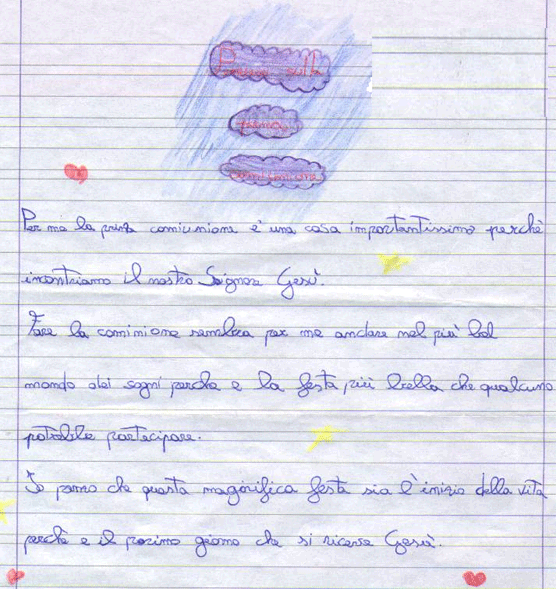 sulla
prima
comunione
Per me la prima comiunione è una cosa importantissimo perchè
incontriamo il nostro Signore Gesù.
Fare la cominione sembra per me andare nel più bel
mondo dei sogni perche e la festa più bella che qualcuno
potrebbe partecipare.
Io penso che questa maginifica festa sia l'inizio della vita
perchè e il primo giorno che si riceve Gesù.